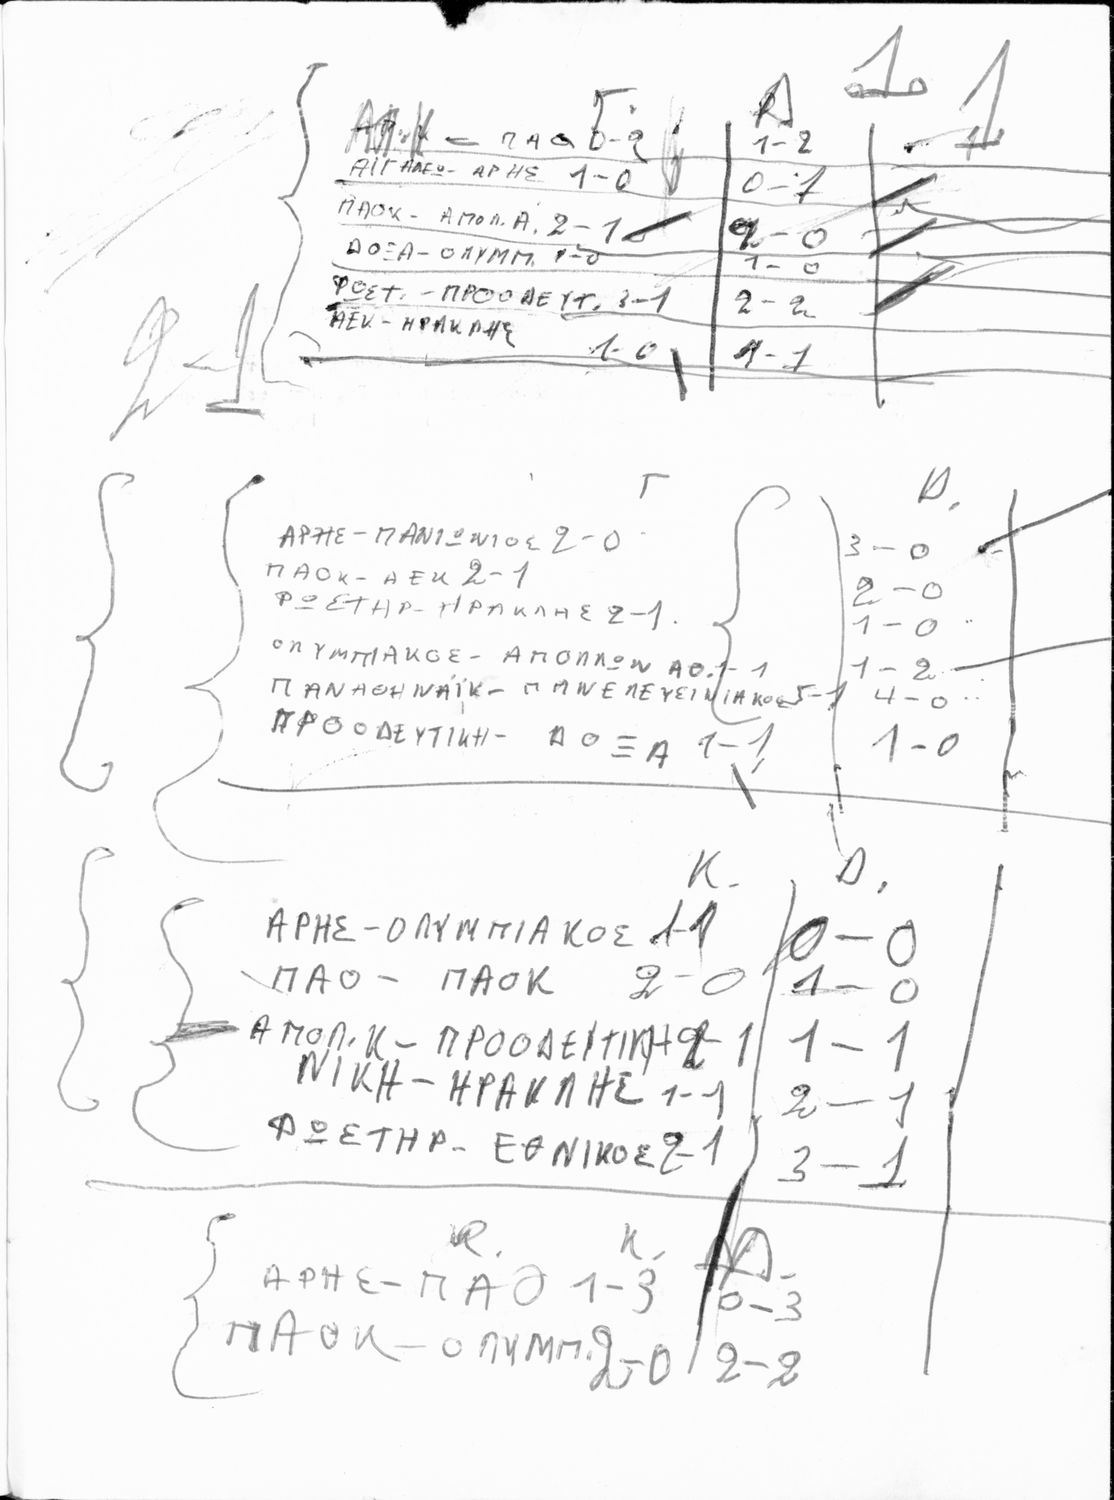 1. 1
Γ. Δ
ΑΠ.Κ - ΠΑΟ 0-2 1-2
ΑΙΓΑΛΕΩ- ΑΡΗΣ 1-0 0-1
ΠΑΟΚ- ΑΠΟΛ.Α. 2-1 2-0
ΔΟΞΑ-ΟΛΥΜΠ. 1-0 1-0
ΦΩΣΤ. -ΠΡΟΟΔΕΥΤ. 3-1 2-2
ΑΕΚ-ΗΡΑΚΛΗΣ
1-0 1-1
2-1
Γ Δ.
ΑΡΗΣ-ΠΑΝΙΩΝΙΟΣ 2-0 3-0
ΠΑΟΚ-ΑΕΚ 2-1 2-0
ΦΩΣΤΗΡ-ΗΡΑΚΛΗΣ 2-1. 1-0
ΟΛΥΜΠΙΑΚΟΣ- ΑΠΟΛΛΩΝ ΑΘ.1-1 1-2
ΠΑΝΑΘΗΝΑΪΚ- ΠΑΝΕΛΕΥΣΙΝΙΑΚΟΣ 5-1 4-0
ΠΡΟΟΔΕΥΤΙΚΗ- ΔΟΞΑ 1-1 1-0
Κ. Δ.
ΑΡΗΣ-ΟΛΥΜΠΙΑΚΟΣ 1-1 0-0
ΠΑΟ- ΠΑΟΚ 2-0 1-0
ΑΠΟΛ.Κ- ΠΡΟΟΔΕΥΤΙΚΗ 2-1 1-1
ΝΙΚΗ-ΗΡΑΚΛΗΣ 1-1 2-1
ΦΩΣΤΗΡ- ΕΘΝΙΚΟΣ 2-1 3-1
Κ. Κ. Δ.
ΑΡΗΣ-ΠΑΟ 1-3 0-3
ΠΑΟΚ-ΟΛΥΜΠ. 2-0 2-2